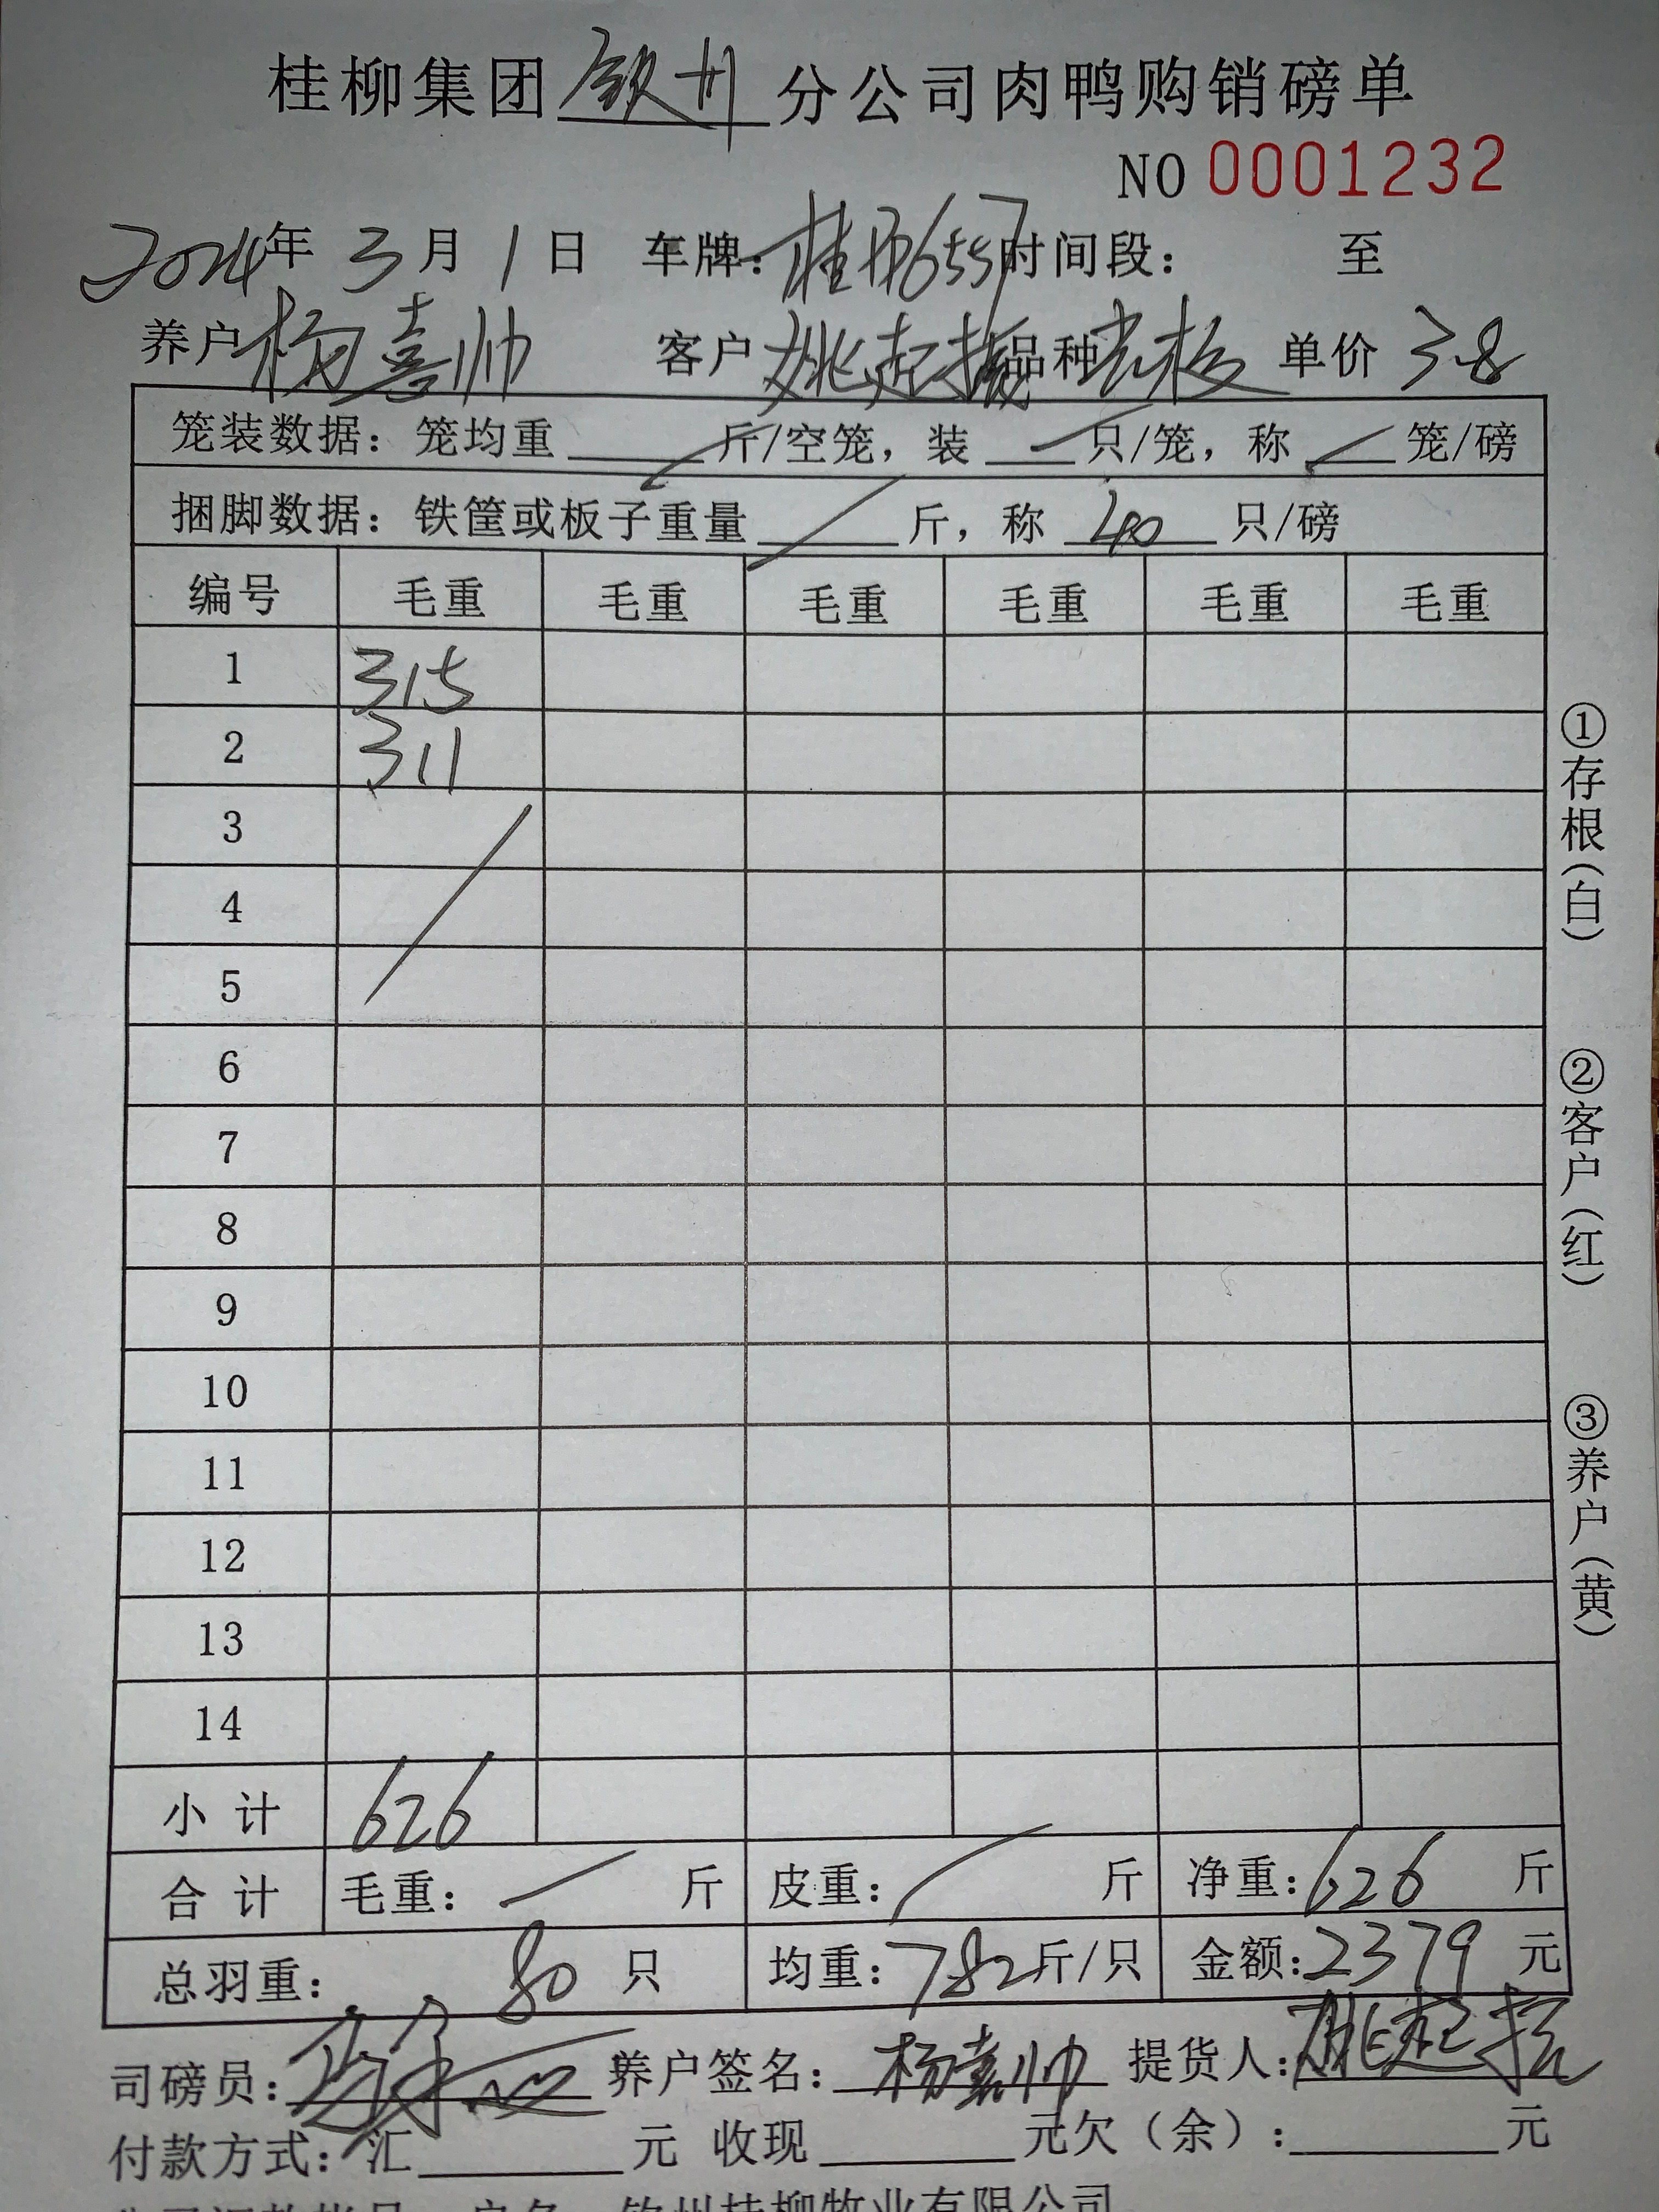 桂柳集团 钦州 分公司肉鸭购销磅单
NO 0001232
2024年 3月 1日 车牌: 桂 6557 时间段: 至
养户 杨喜帅 客户 姚起振 品种 单价 3.8
笼装数据: 笼均重 斤/空笼, 装 只/笼, 称 笼/磅
捆脚数据: 铁筐或板子重量 斤, 称 40 只/磅
编号 毛重 毛重 毛重 毛重 毛重 毛重
1 315
2 311
3
4
5
6
7
8
9
10
11
12
13
14
小计 626
合计 毛重: 斤 皮重: 斤 净重: 626 斤
总羽重: 80 只 均重: 782 斤/只 金额: 2379 元
司磅员: 养户签名: 杨喜帅 提货人: 姚起振
付款方式: 汇 元 收现 元欠(余): 元
钦州桂柳牧业有限公司
①存根(白)
②客户(红)
③养户(黄)